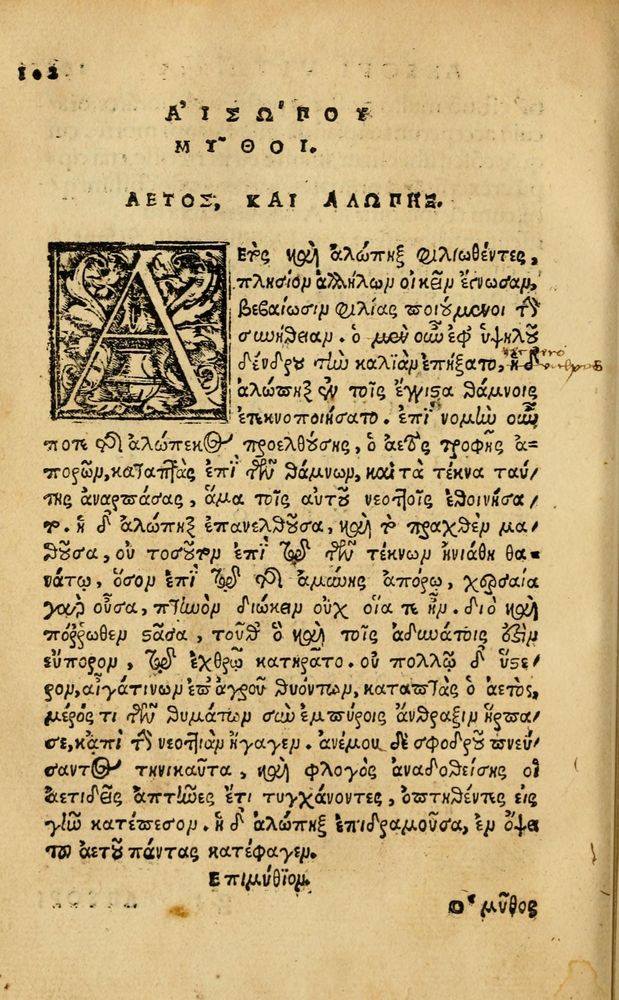 102
ΑἸΣΩ'ΠΟΥ
ΜΥ͂ΘΟΙ.
ΑΕΤΟΣ, ΚΑΙ ΑΛΩΠΗΞ.
ΑΕτὸς καὶ ἀλώπηξ φιλιωθέντες,
πλησίον ἀλλήλων οἰκεῖν ἔγνωσαν,
βεβαίωσιν φιλίας ποιούμενοι τὴν
συνήθειαν. ὁ μὲν οὖν ἐφ' ὑψηλοῦ
δένδρου τὴν καλιὰν ἐπήξατο, ἡ δ'
ἀλώπηξ ἐν τοῖς ἔγγιστα θάμνοις
ἐτεκνοποιήσατο. ἐπὶ νομὴν οὖν
ποτε τῆς ἀλώπεκος προελθούσης, ὁ ἀετὸς τροφῆς ἀ=
πορῶν, καταπτὰς ἐπὶ τῶν θάμνων, καὶ τὰ τέκνα ταύ/
της ἀναρπάσας, ἅμα τοῖς αὑτοῦ νεοττοῖς ἐθοινήσα/
το. ἡ δ' ἀλώπηξ ἐπανελθοῦσα, καὶ τὸ πραχθὲν μα/
θοῦσα, οὐ τοσοῦτον ἐπὶ τῷ τῶν τέκνων ἠνιάθη θα=
νάτῳ, ὅσον ἐπὶ τῷ τῆς ἀμύνης ἀπόρῳ, χερσαία
γὰρ οὖσα, πτηνὸν διώκειν οὐχ οἵα τε ἦν. διὸ καὶ
πόρρωθεν στᾶσα, τοῦθ' ὃ καὶ τοῖς ἀδυνάτοις ἐστὶν
εὔπορον, τῷ ἐχθρῷ κατηρᾶτο. οὐ πολλῷ δ' ὕστε/
ρον, αἶγά τινων ἐπ' ἀγροῦ θυόντων, καταπτὰς ὁ ἀετὸς,
μέρός τι τῶν θυμάτων σὺν ἐμπύροις ἄνθραξιν ἥρπα/
σε, κἀπὶ τὴν νεοττιὰν ἤγαγεν. ἀνέμου δὲ σφοδροῦ πνεύ/
σαντος τηνικαῦτα, καὶ φλογὸς ἀναδοθείσης οἱ
ἀετιδεῖς ἀπτῆνες ἔτι τυγχάνοντες, ὀπτηθέντες εἰς
γῆν κατέπεσον. ἡ δ' ἀλώπηξ ἐπιδραμοῦσα, ἐν ὄψει
τοῦ ἀετοῦ πάντας κατέφαγεν.
Ἐπιμύθιον.
Ὁ μῦθος